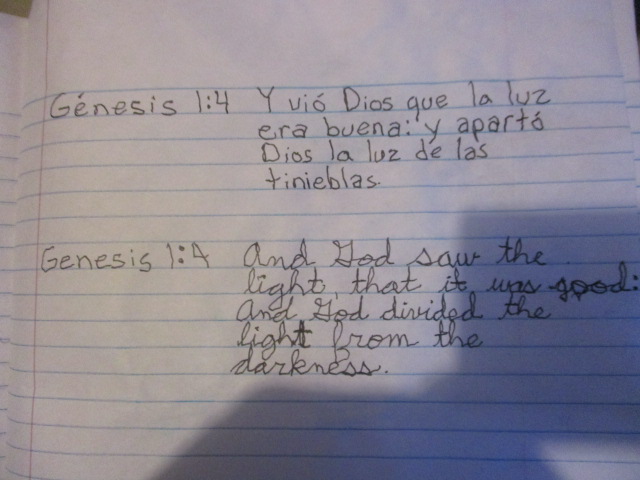 Génesis 1:4 Y vió Dios que la luz
era buena: y apartó
Dios la luz de las
tinieblas.
Genesis 1:4 And God saw the
light, that it was good:
and God divided the
light from the
darkness.